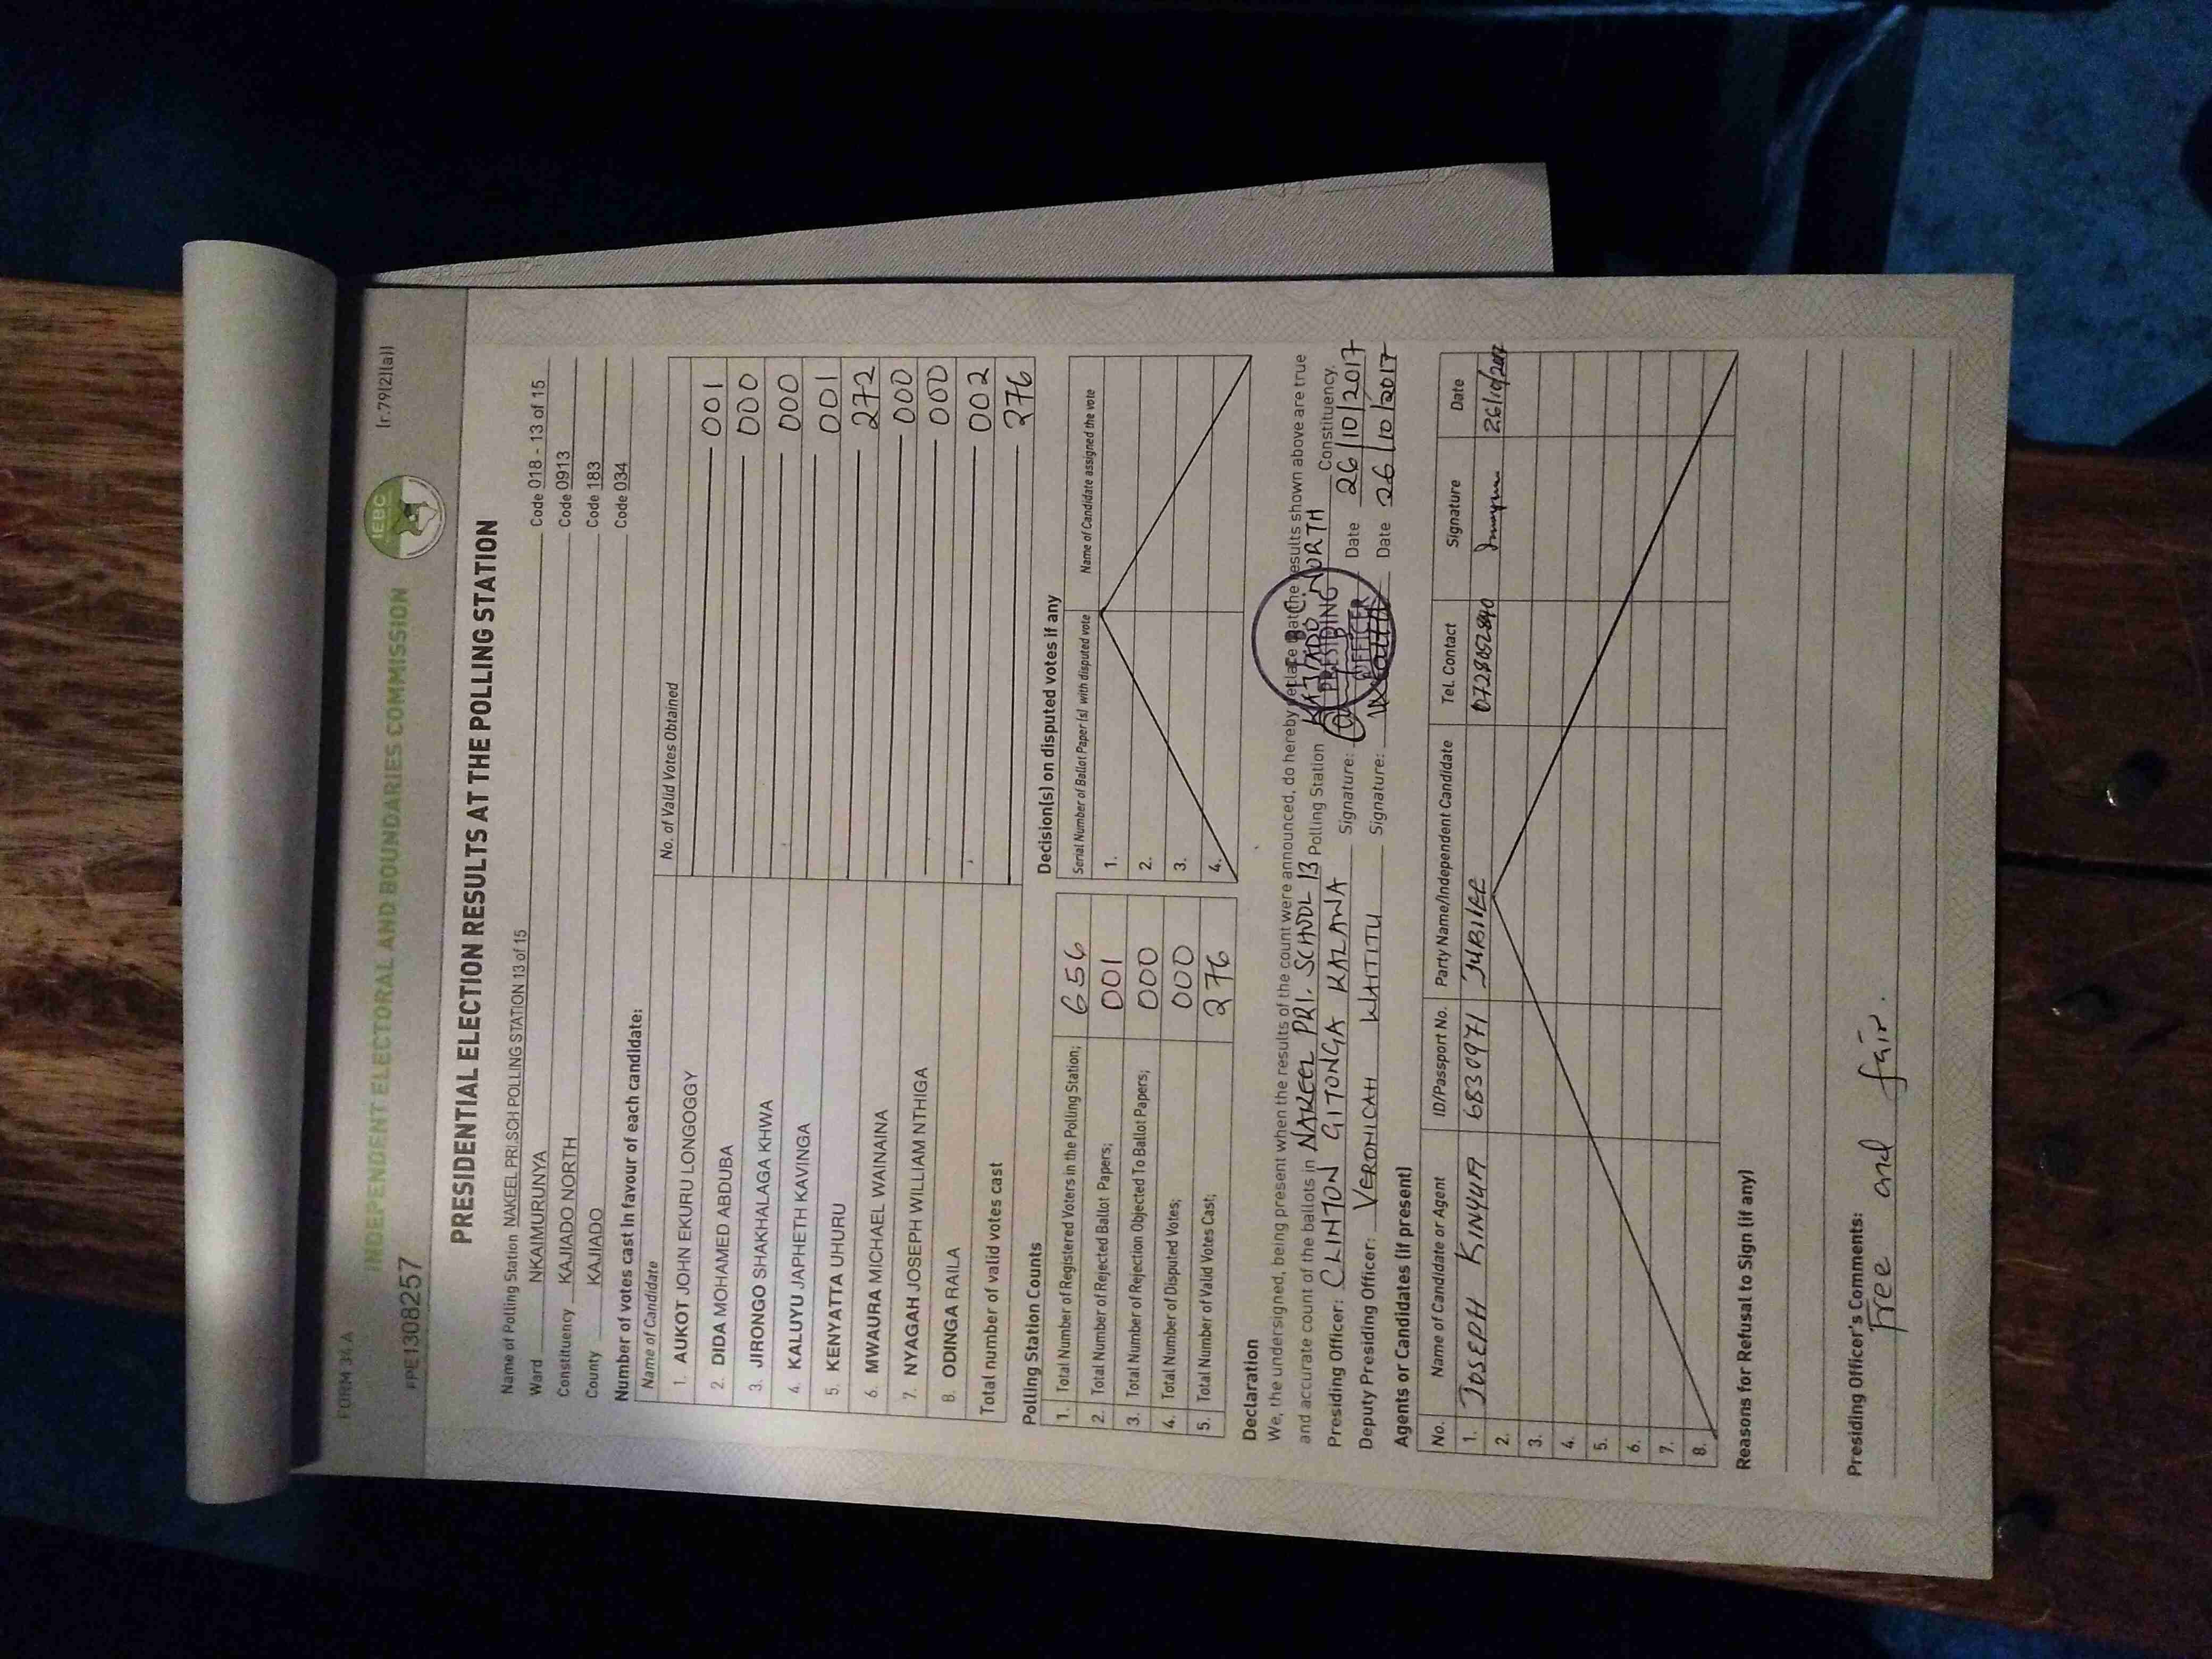 FORM 34 A
(r.79(2)(a))
INDEPENDENT ELECTORAL AND BOUNDARIES COMMISSION
IEBC
PPE1308257
PRESIDENTIAL ELECTION RESULTS AT THE POLLING STATION
Name of Polling Station NAKEEL PRI.SCH POLLING STATION 13 of 15 Code 018 - 13 of 15
Ward NKAIMURUNYA Code 0913
Constituency KAJIADO NORTH Code 183
County KAJIADO Code 034
Number of votes cast in favour of each candidate:
Name of Candidate No. of Valid Votes Obtained
1. AUKOT JOHN EKURU LONGOGGY 001
2. DIDA MOHAMED ABDUBA 000
3. JIRONGO SHAKHALAGA KHWA 000
4. KALUYU JAPHETH KAVINGA 001
5. KENYATTA UHURU 272
6. MWAURA MICHAEL WAINAINA 000
7. NYAGAH JOSEPH WILLIAM NTHIGA 000
8. ODINGA RAILA 002
Total number of valid votes cast 276
Polling Station Counts
1. Total Number of Registered Voters in the Polling Station; 656
2. Total Number of Rejected Ballot Papers; 001
3. Total Number of Rejection Objected To Ballot Papers; 000
4. Total Number of Disputed Votes; 000
5. Total Number of Valid Votes Cast; 276
Decision(s) on disputed votes if any
Serial Number of Ballot Paper (s) with disputed vote Name of Candidate assigned the vote
1.
2.
3.
4.
Declaration
We, the undersigned, being present when the results of the count were announced, do hereby declare that the results shown above are true
and accurate count of the ballots in NAKEEL PRI. SCHOOL 13 Polling Station KAJIADO NORTH Constituency.
Presiding Officer: CLINTON GITONGA KALAWA Signature: Date 26/10/2017
Deputy Presiding Officer: VERONICAH WAITITU Signature: Date 26/10/2017
PRESIDING
OFFICER
Agents or Candidates (if present)
No. Name of Candidate or Agent ID/Passport No. Party Name/Independent Candidate Tel. Contact Signature Date
1. JOSEPH KINYUA 6830971 JUBILEE 26/10/2017
2.
3.
4.
5.
6.
7.
8.
Reasons for Refusal to Sign (if any)
Presiding Officer's Comments:
Free and fair.